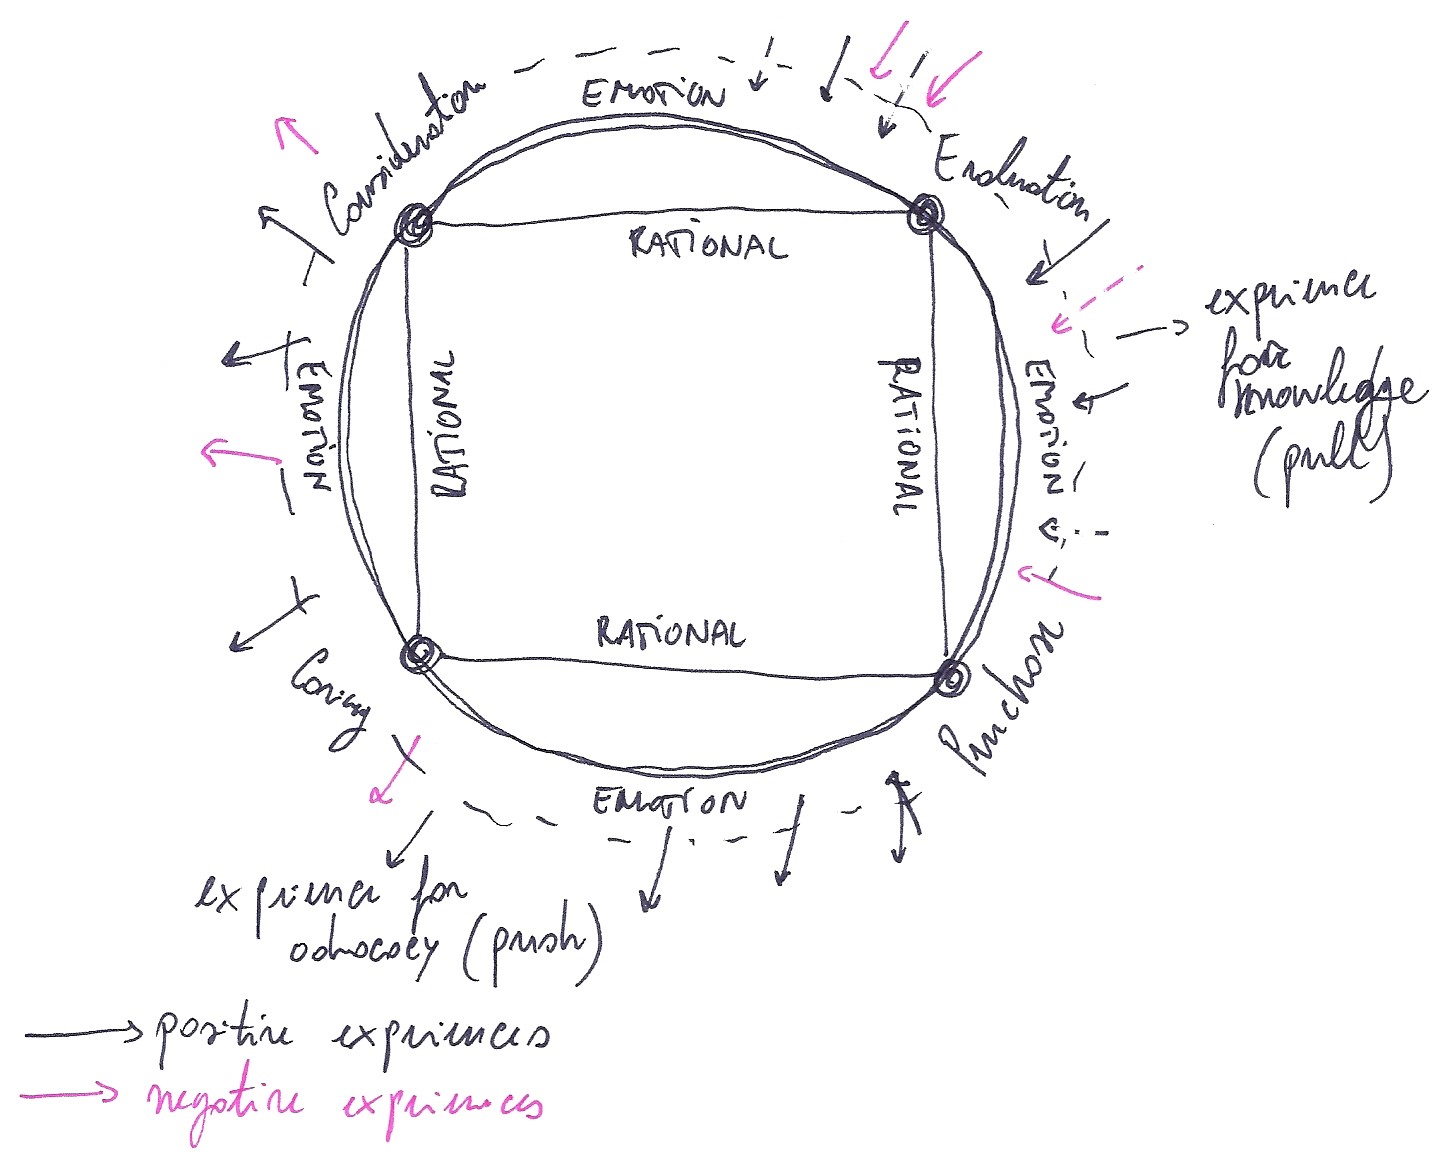 EMOTION
Consideration
Evaluation
RATIONAL
EMOTION
RATIONAL
RATIONAL
EMOTION
experience
for
knowledge
(pull)
RATIONAL
Caring
Purchase
EMOTION
experience for
advocacy (push)
positive experiences
negative experiences